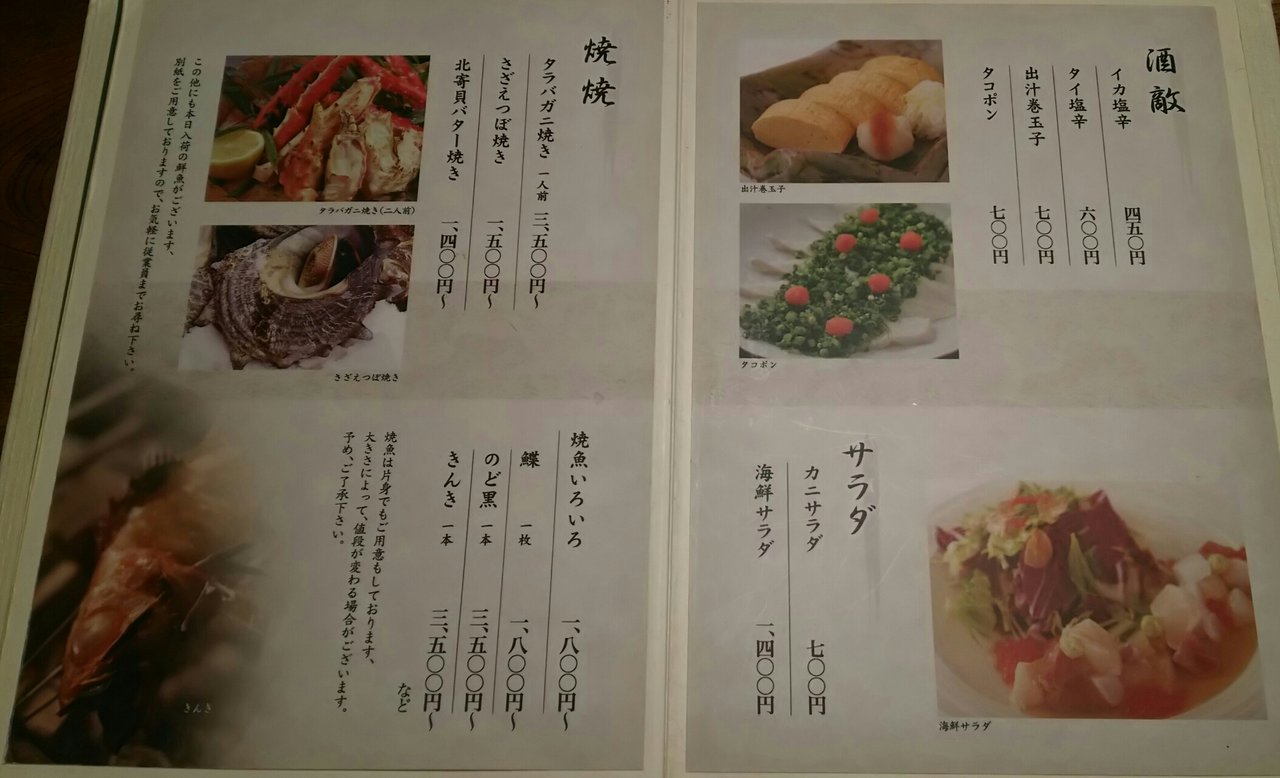 酒敵
イカ塩辛 四五〇円
タイ塩辛 六〇〇円
出汁巻玉子 七〇〇円
タコポン 七〇〇円
出汁巻玉子
タコポン
サラダ
カニサラダ 七〇〇円
海鮮サラダ 一、四〇〇円
海鮮サラダ
焼焼
タラバガニ焼き 一人前 三、五〇〇円~
さざえつぼ焼き 一、五〇〇円~
北寄貝バター焼き 一、四〇〇円~
タラバガニ焼き(二人前)
さざえつぼ焼き
この他にも本日入荷の鮮魚がございます、
別紙をご用意しておりますので、お気軽に従業員までお尋ね下さい。
焼魚いろいろ 一、八〇〇円~
鰈 一枚 一、八〇〇円~
のど黒 一本 三、五〇〇円~
きんき 一本 三、五〇〇円~
など
焼魚は片身でもご用意もしております、
大きさによって、値段が変わる場合がございます。
予め、ご了承下さい。
きんき